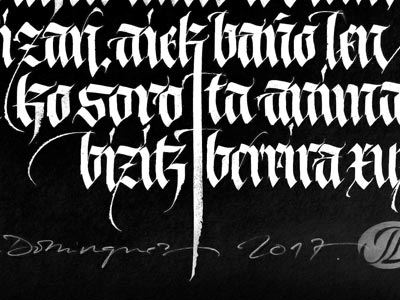 izan. aiek baño len
ko soro ta anima
bizitz berrira xu
Dominguez 2017.